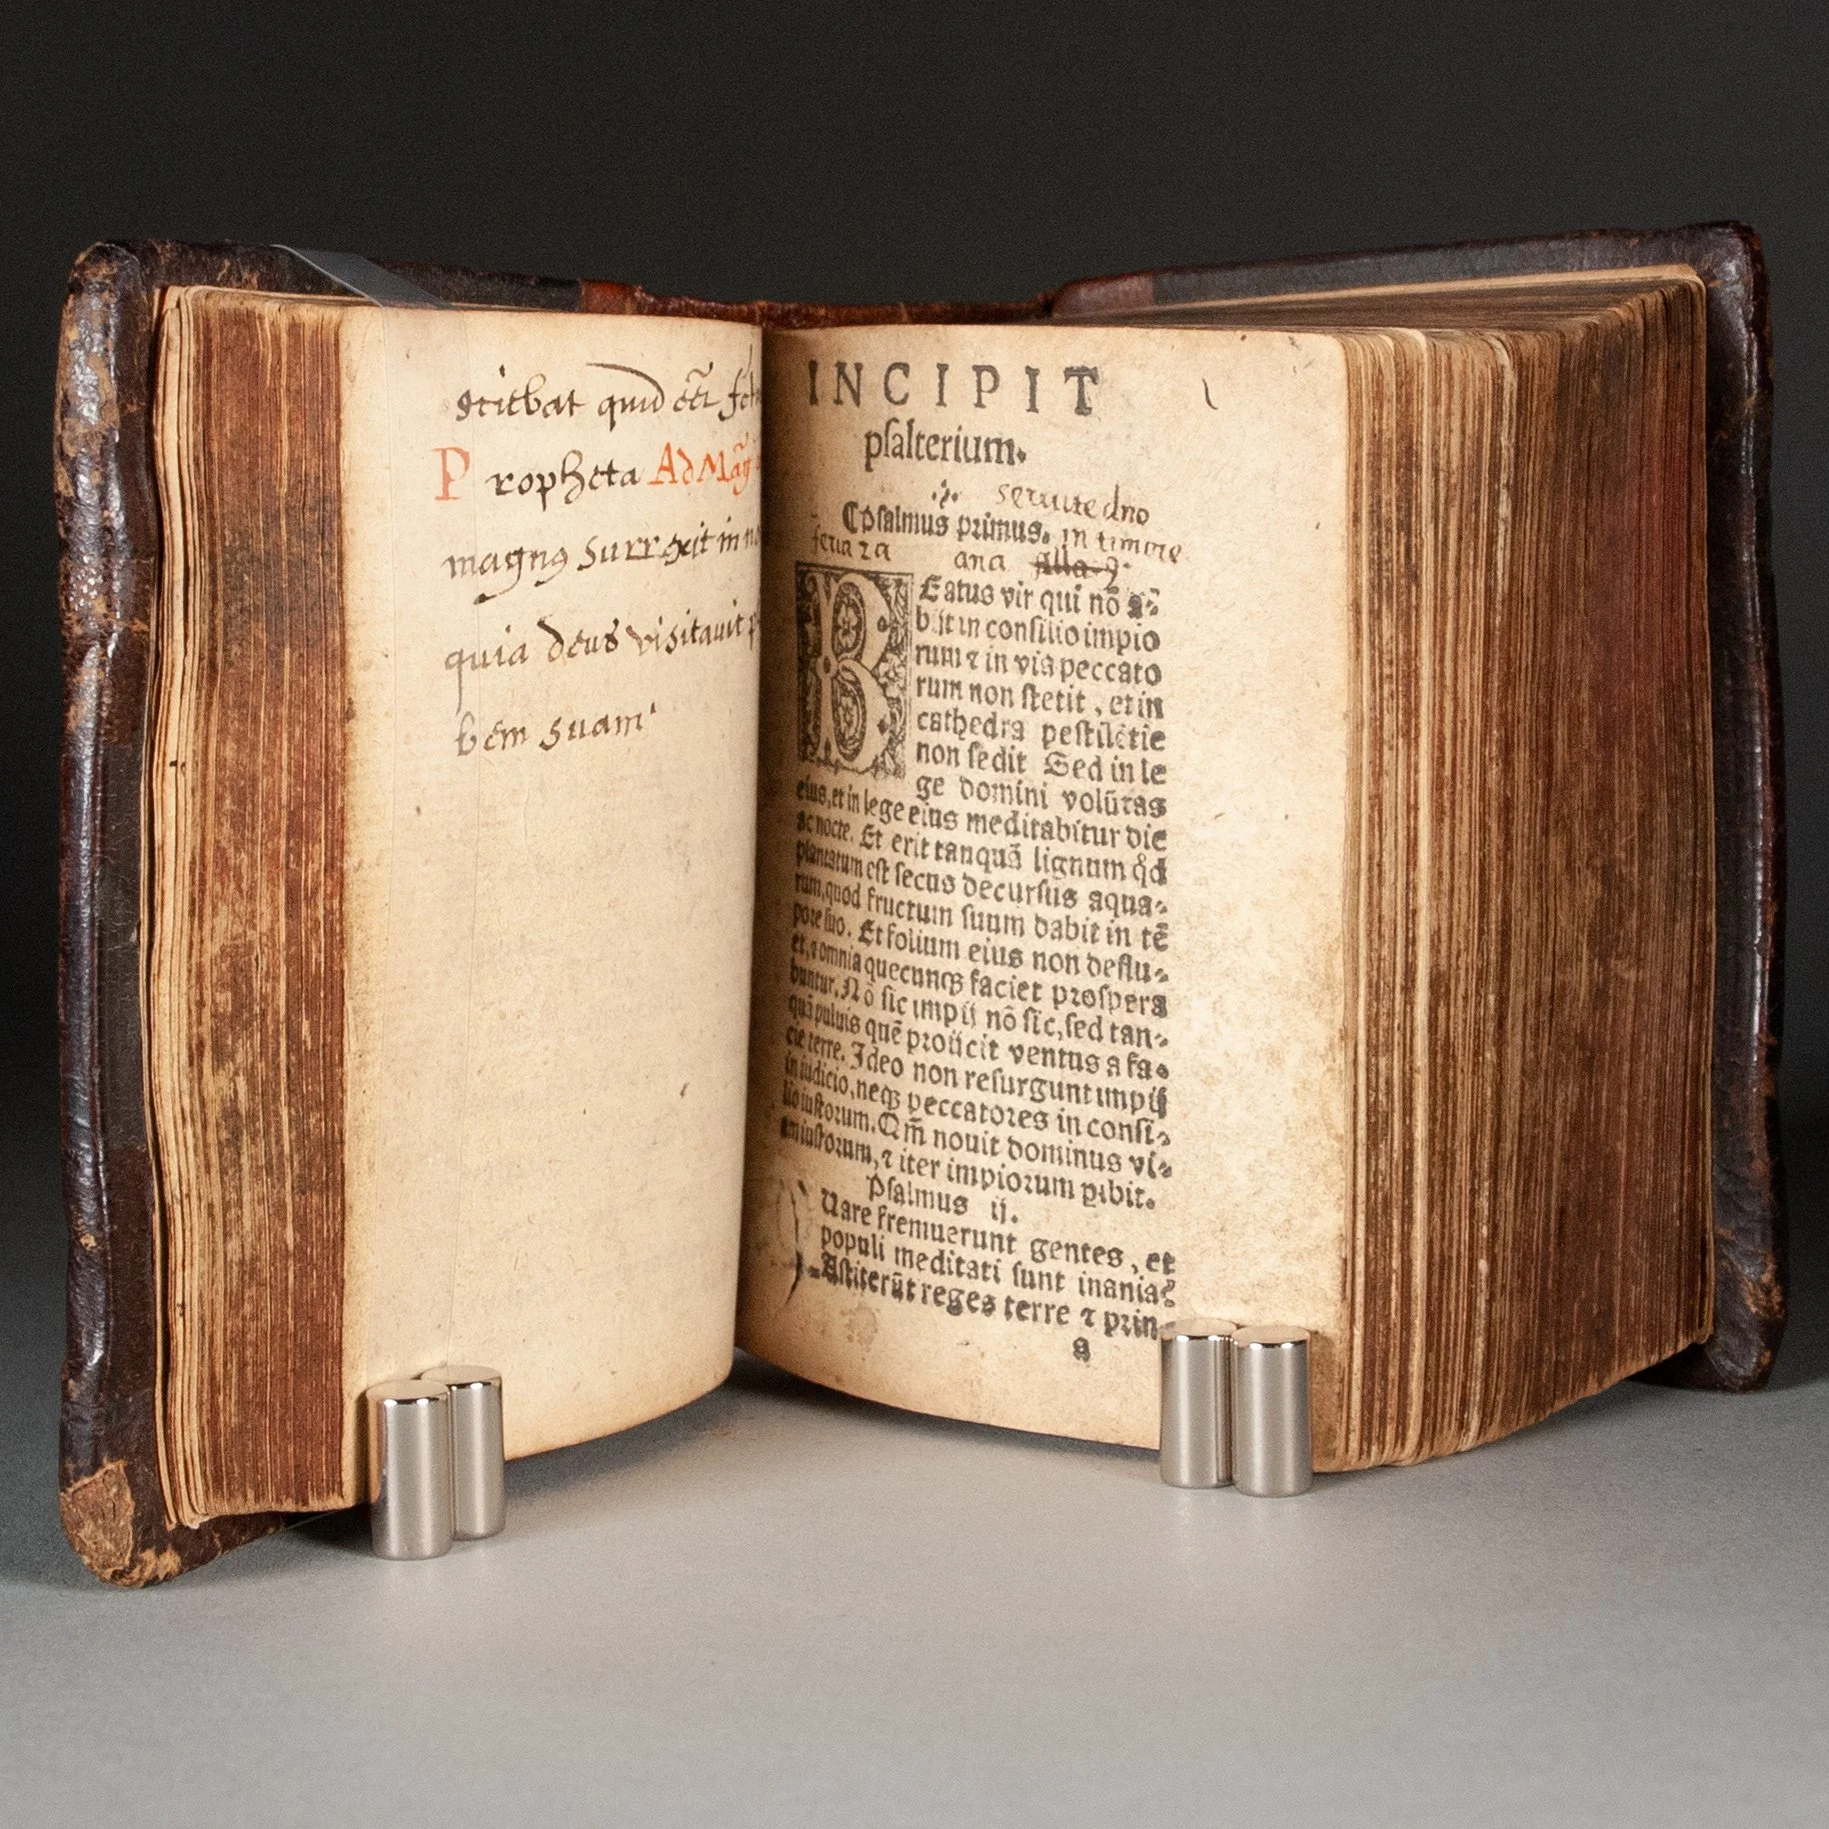 scitbat quid
Propheta Ad Mag̃
magnꝯ surrexit in
quia deus visitauit
bem suam
INCIPIT
pſalterium.
seruite dno
Pſalmus primus. in timore
feria 2a ana
BEatus vir qui nõ a⸗
bijt in conſilio impio
rum ⁊ in via peccato
rum non ſtetit, et in
cathedra peſtilẽtie
non ſedit Sed in le
ge domini volũtas
eius, et in lege eius meditabitur die
ac nocte. Et erit tanquã lignum qd
plantatum eſt ſecus decurſus aqua⸗
rum, quod fructum ſuum dabit in tẽ
pore ſuo. Et folium eius non deflu⸗
et, ⁊ omnia quecunqꝫ faciet proſpera
buntur. Nõ ſic impij nõ ſic, ſed tan⸗
quã puluis quẽ proijcit ventus a fa⸗
cie terre. Ideo non reſurgunt impij
in iudicio, neqꝫ peccatores in conſi⸗
lio iuſtorum. Qm̃ nouit dominus vi⸗
am iuſtorum, ⁊ iter impiorum ꝑibit.
Pſalmus ij.
Quare fremuerunt gentes, et
populi meditati ſunt inania?
Aſtiterũt reges terre ⁊ prin⸗
a